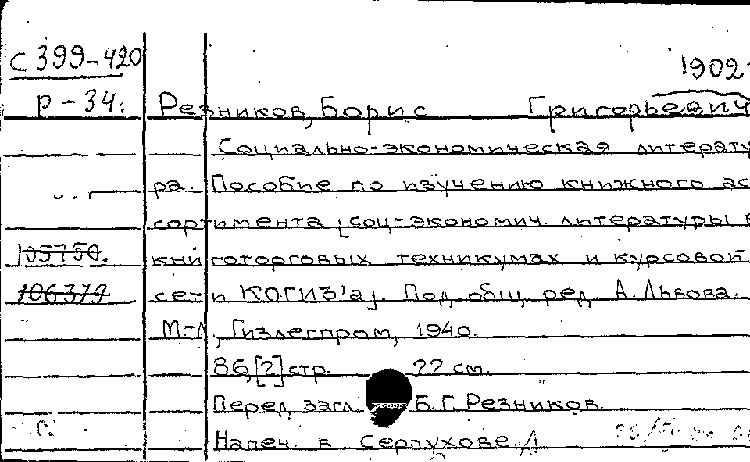 С 399-420
1902-
Р-34.
Резников, Борис Григорьевич
Социально-экономическая литерату
ра. Пособие по изучению книжного ас
сортимента [соц-экономич. литературы в
105750.
книготорговых техникумах и курсовой
106379
сети КОГИЗ'а]. Под общ. ред. А. Львова.
М-Л, Гизлегпром, 1940.
86, [2] стр. 22 см.
Перед загл. Б. Г. Резников.
Напеч. в Серпухове